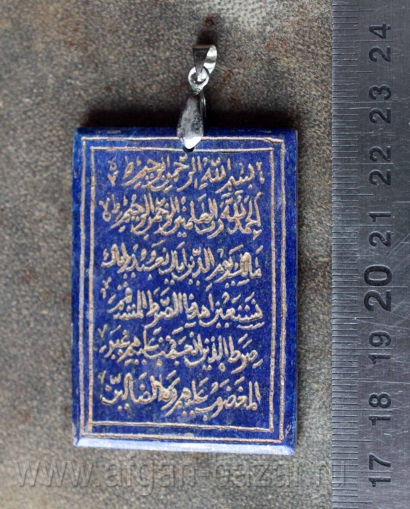 بسم الله الرحمن الرحيم
الحمد لله رب العلمين الرحمن الرحيم
مالك يوم الدين اياك نعبد واياك
نستعين اهدنا الصراط المستقيم
صراط الذين انعمت عليهم غير
المغضوب عليهم ولا الضالين
17 18 19 20 21 22 23 24
www.afgan-bazar.ru